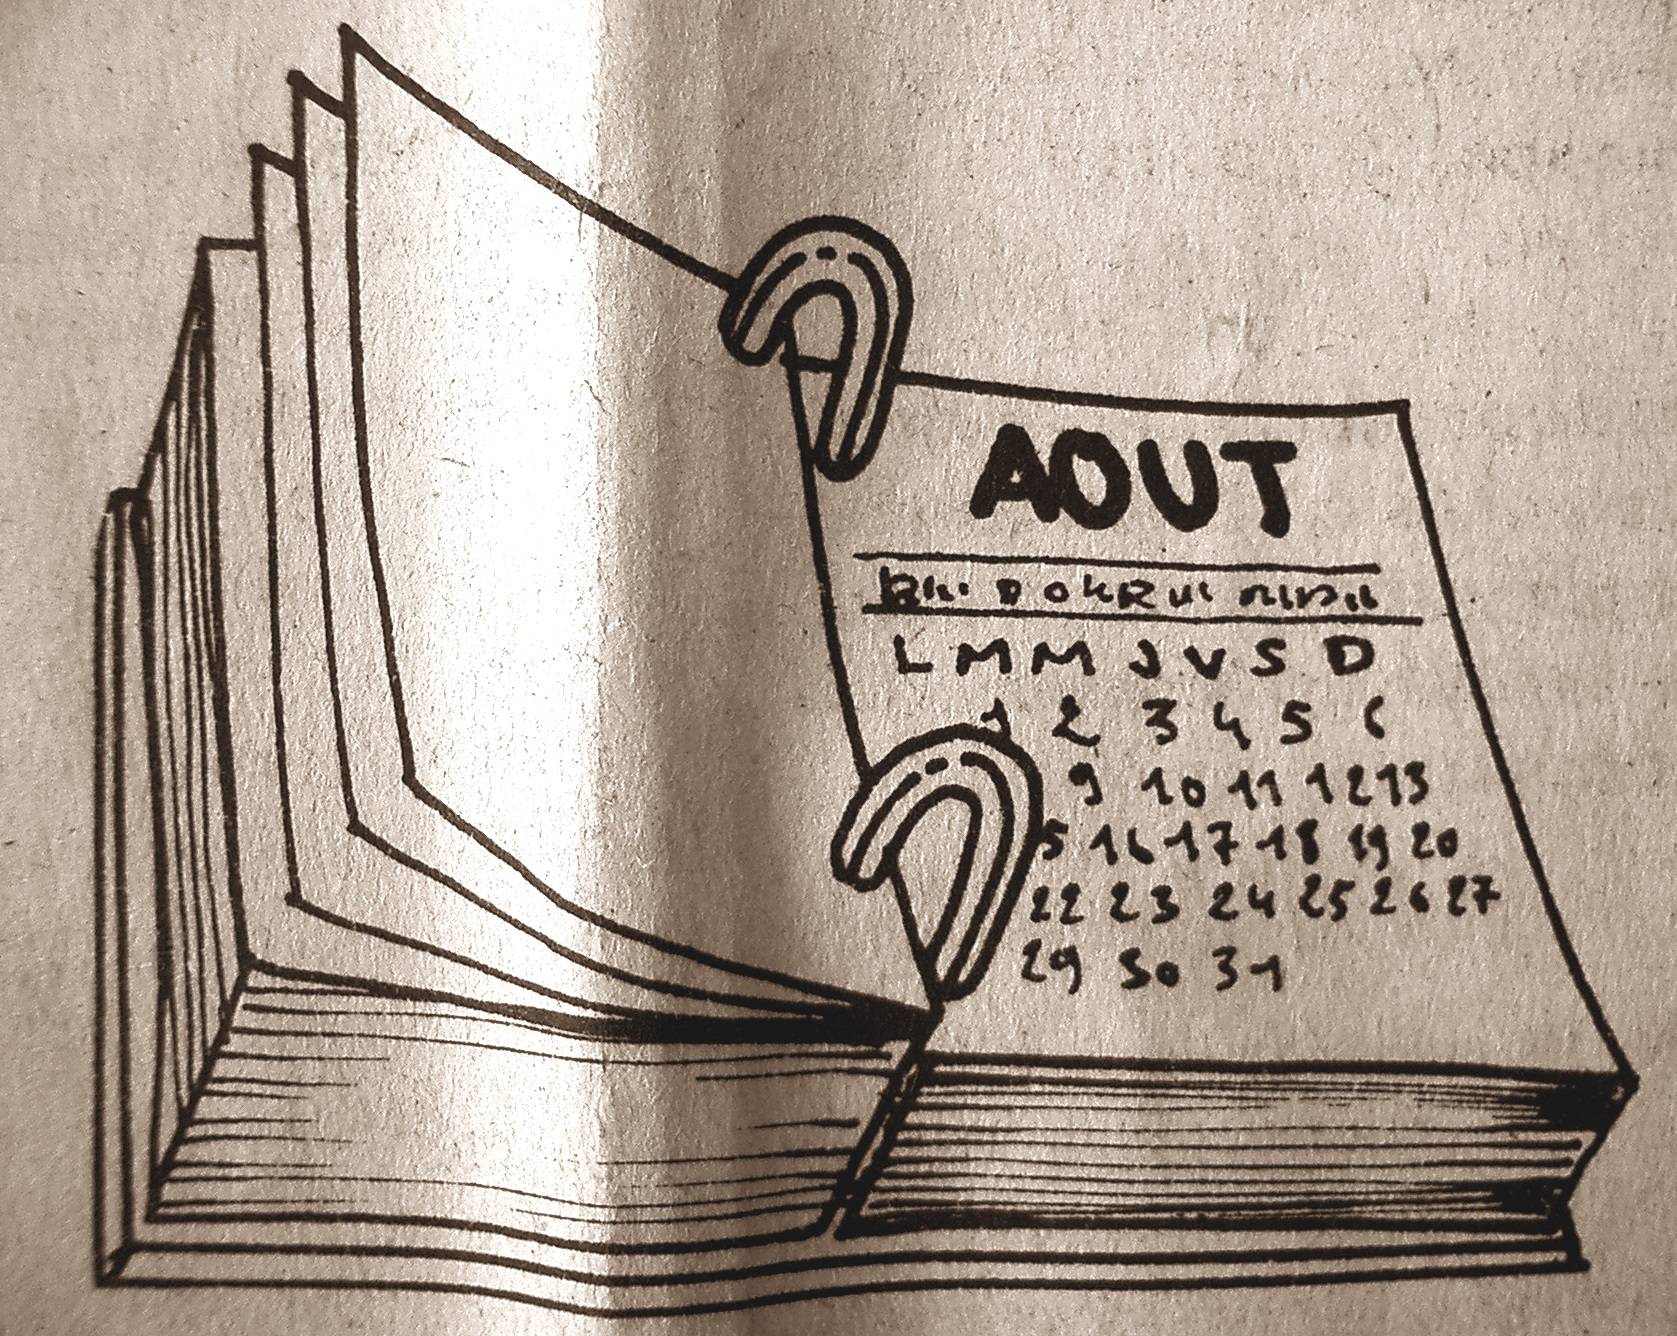 AOUT
L M M J V S D
1 2 3 4 5 6
9 10 11 12 13
5 16 17 18 19 20
22 23 24 25 26 27
29 30 31